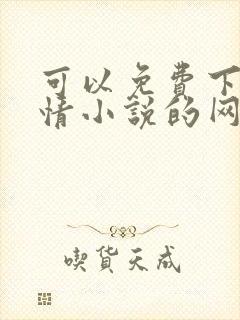 可以免費下
情小説的网
喫貨天成